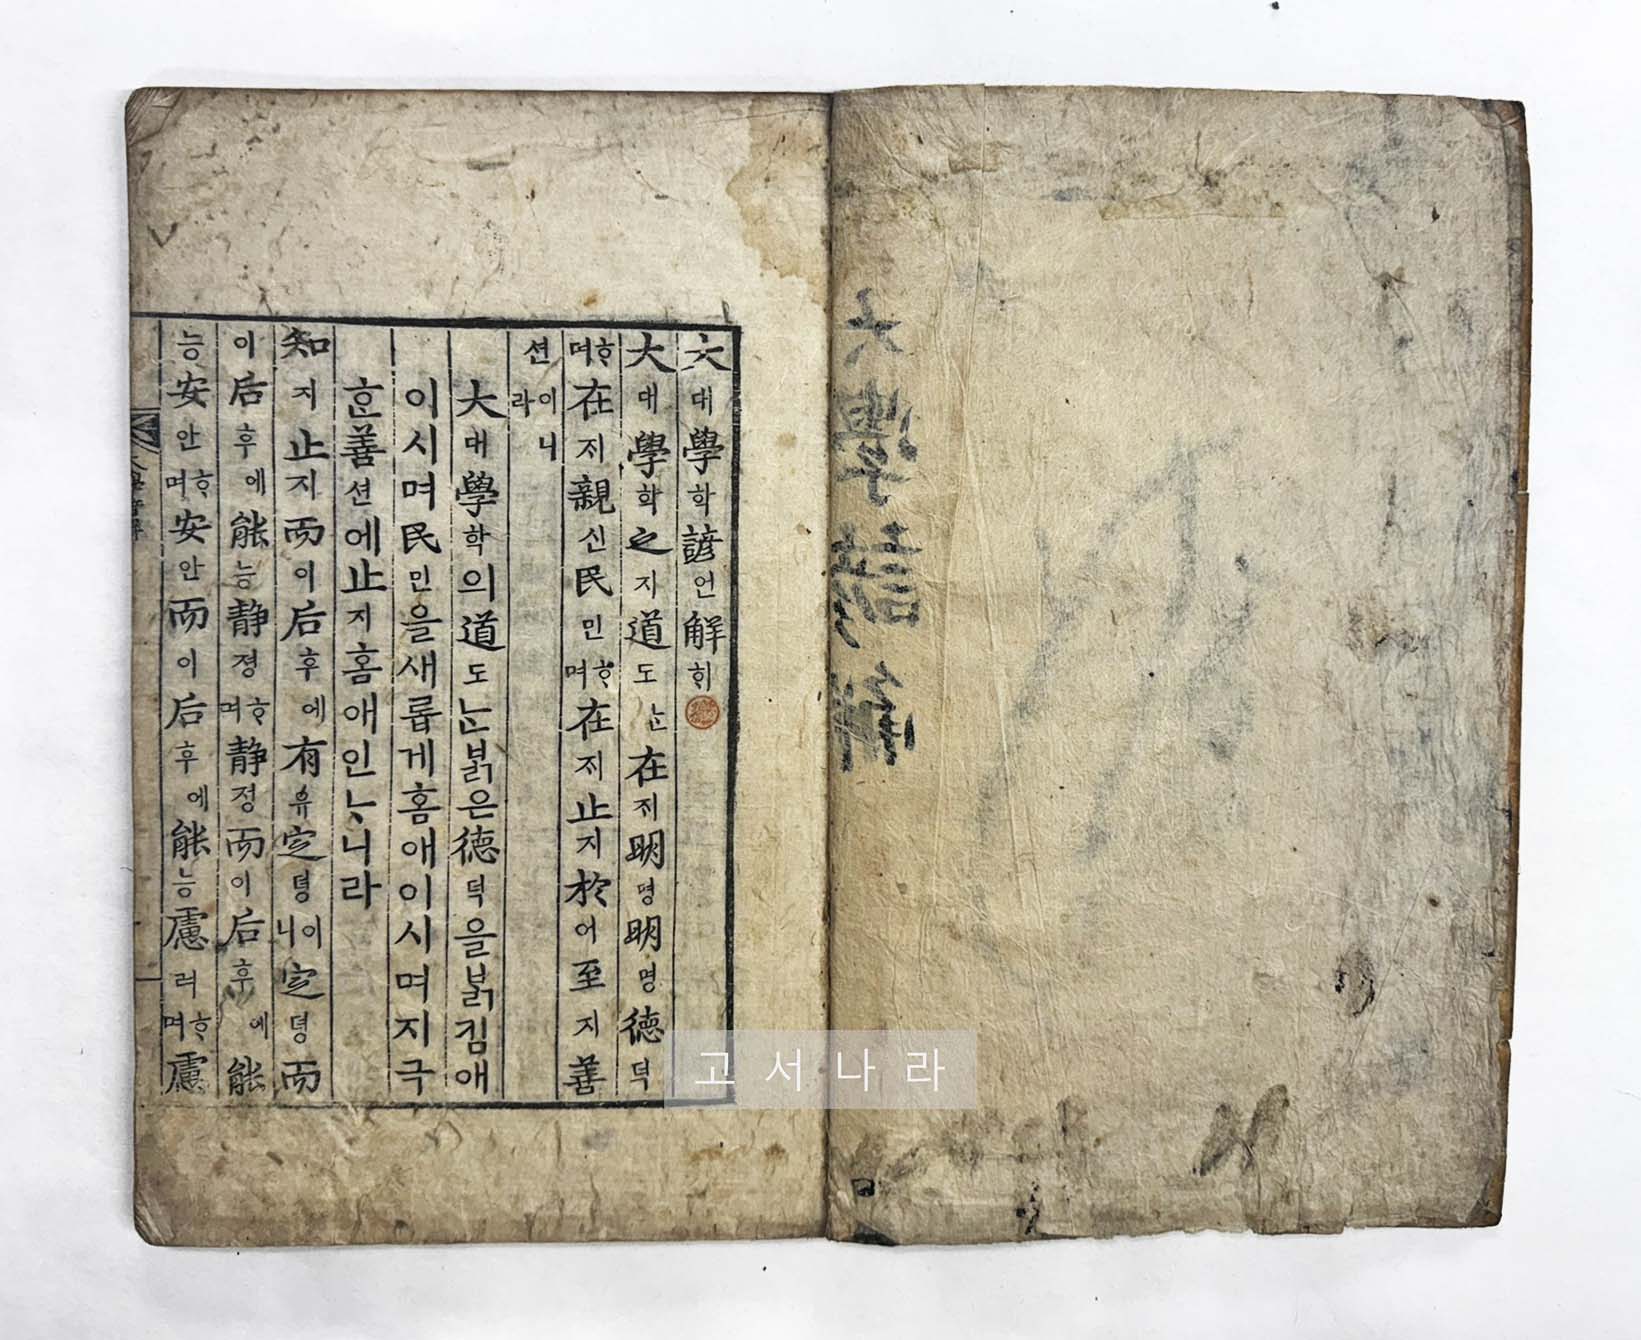 大學諺解
大대學학諺언解ᄒᆡ
大대學학之지道도ᄂᆞᆫ在ᄌᆡ明명明명德덕
ᄒᆞ며在ᄌᆡ親신民민ᄒᆞ며在ᄌᆡ止지於어至지善
션이니라
大대學학의道도ᄂᆞᆫ붉은德덕을붉킴애
이시며民민을새롭게홈애이시며지극
ᄒᆞᆫ善션에止지홈애인ᄂᆞ니라
知지止지而이后후에有유定뎡이니定뎡而
이后후에能능静졍ᄒᆞ며静정而이后후에能
능安안ᄒᆞ며安안而이后후에能능慮려ᄒᆞ며慮
고서나라